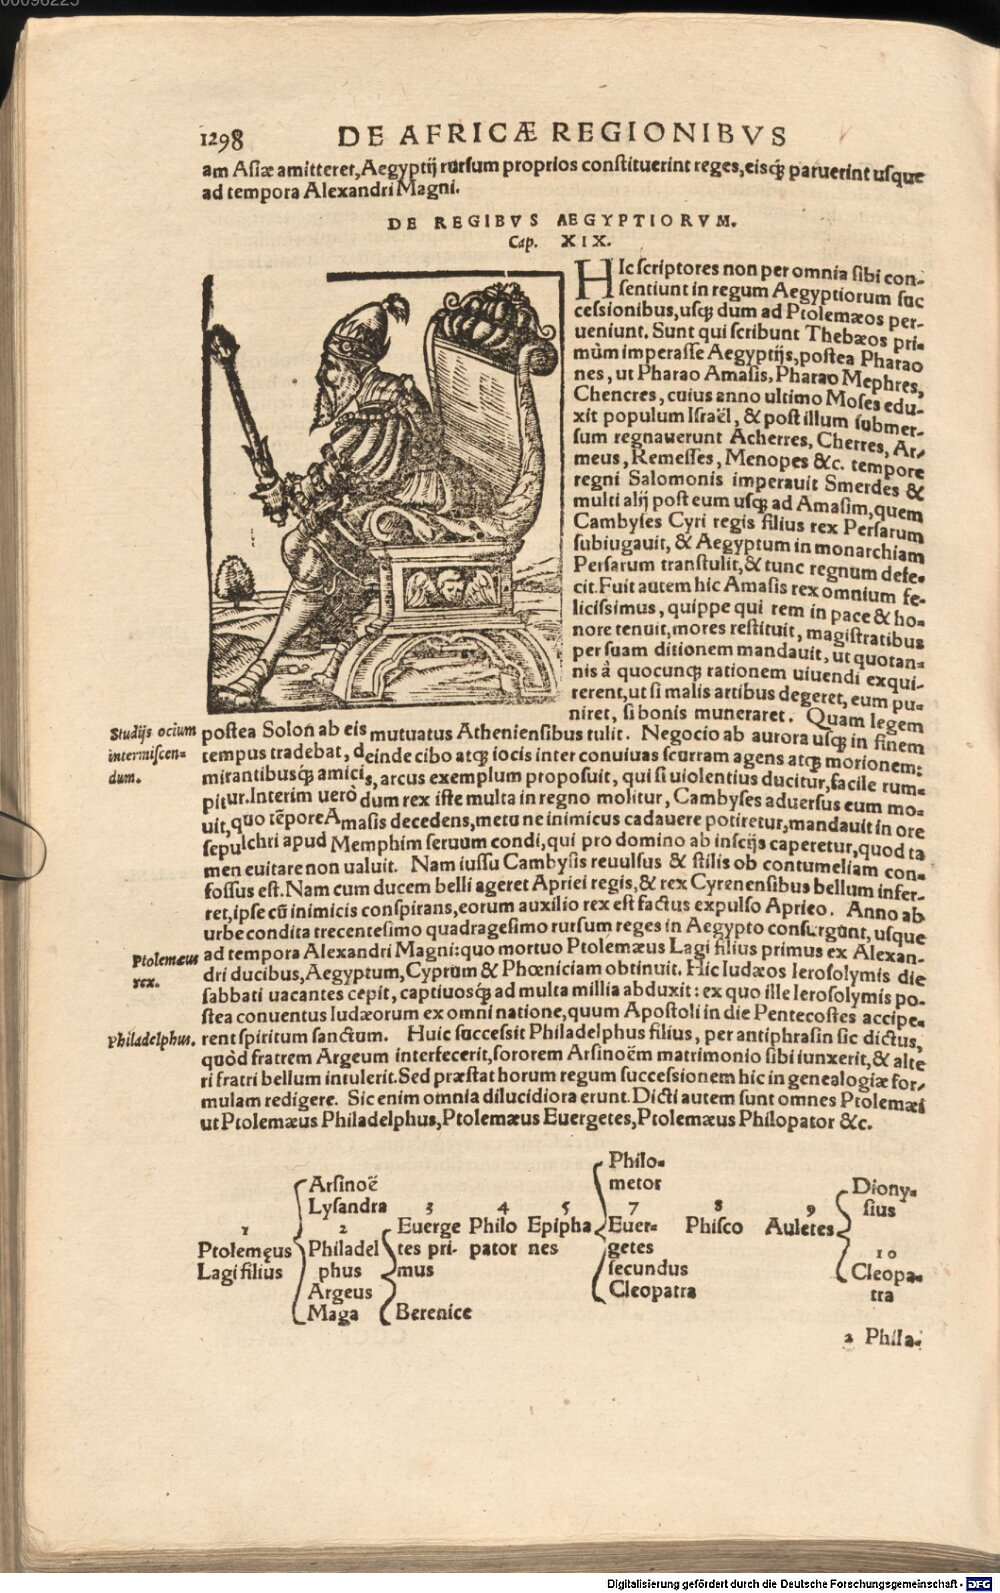 00096225
1298 DE AFRICÆ REGIONIBVS
am Asiæ amitteret, Aegyptij rursum proprios constituerint reges, eisq́; paruerint usque
ad tempora Alexandri Magni.
DE REGIBVS AEGYPTIORVM.
Cap. XIX.
HIc scriptores non per omnia sibi con-
sentiunt in regum Aegyptiorum suc
cessionibus, usq; dum ad Ptolemæos per-
ueniunt. Sunt qui scribunt Thebæos pri-
mùm imperasse Aegyptijs, postea Pharao
nes, ut Pharao Amasis, Pharao Mephres,
Chencres, cuius anno ultimo Moses edu-
xit populum Israël, & post illum submer-
sum regnauerunt Acherres, Cherres, Ar-
meus, Remesses, Menopes &c. tempore
regni Salomonis imperauit Smerdes &
multi alij post eum usq; ad Amasim, quem
Cambyses Cyri regis filius rex Persarum
subiugauit, & Aegyptum in monarchiam
Persarum transtulit, & tunc regnum defe-
cit. Fuit autem hic Amasis rex omnium fe-
licissimus, quippe qui rem in pace & ho-
nore tenuit, mores restituit, magistratibus
per suam ditionem mandauit, ut quotan-
nis à quocunq; rationem uiuendi exqui-
rerent, ut si malis artibus degeret, eum pu-
niret, si bonis muneraret. Quam legem
Studijs ocium
intermiscen-
dum.
postea Solon ab eis mutuatus Atheniensibus tulit. Negocio ab aurora usq; in finem
tempus tradebat, deinde cibo atq; iocis inter conuiuas scurram agens atq; morionem:
mirantibusq; amicis, arcus exemplum proposuit, qui si uiolentius ducitur, facile rum-
pitur. Interim uerò dum rex iste multa in regno molitur, Cambyses aduersus eum mo-
uit, quo tẽpore Amasis decedens, metu ne inimicus cadauere potiretur, mandauit in ore
sepulchri apud Memphim seruum condi, qui pro domino ab inscijs caperetur, quod ta
men euitare non ualuit. Nam iussu Cambysis reuulsus & stilis ob contumeliam con-
fossus est. Nam cum ducem belli ageret Apriei regis, & rex Cyrenensibus bellum infer-
ret, ipse cũ inimicis conspirans, eorum auxilio rex est factus expulso Aprieo. Anno ab
urbe condita trecentesimo quadragesimo rursum reges in Aegypto consurgunt, usque
Ptolemæus
rex.
ad tempora Alexandri Magni: quo mortuo Ptolemæus Lagi filius primus ex Alexan-
dri ducibus, Aegyptum, Cyprum & Phœniciam obtinuit. Hic Iudæos Ierosolymis die
sabbati uacantes cepit, captiuosq́; ad multa millia abduxit: ex quo ille Ierosolymis po-
stea conuentus Iudæorum ex omni natione, quum Apostoli in die Pentecostes accipe-
Philadelphus.
rent spiritum sanctum. Huic successit Philadelphus filius, per antiphrasin sic dictus,
quòd fratrem Argeum interfecerit, sororem Arsinoëm matrimonio sibi iunxerit, & alte
ri fratri bellum intulerit. Sed præstat horum regum successionem hic in genealogiæ for-
mulam redigere. Sic enim omnia dilucidiora erunt. Dicti autem sunt omnes Ptolemæi
ut Ptolemæus Philadelphus, Ptolemæus Euergetes, Ptolemæus Philopator &c.
1
Ptolemęus
Lagi filius
Arsinoë
Lysandra
2
Philadel
phus
Argeus
Maga
3
Euerge
tes pri-
mus
Berenice
4
Philo
pator
5
Epipha
nes
Philo-
metor
7
Euer-
getes
secundus
Cleopatra
8
Phisco
9
Auletes
Diony-
sius
10
Cleopa-
tra
2 Phila-
Digitalisierung gefördert durch die Deutsche Forschungsgemeinschaft - DFG